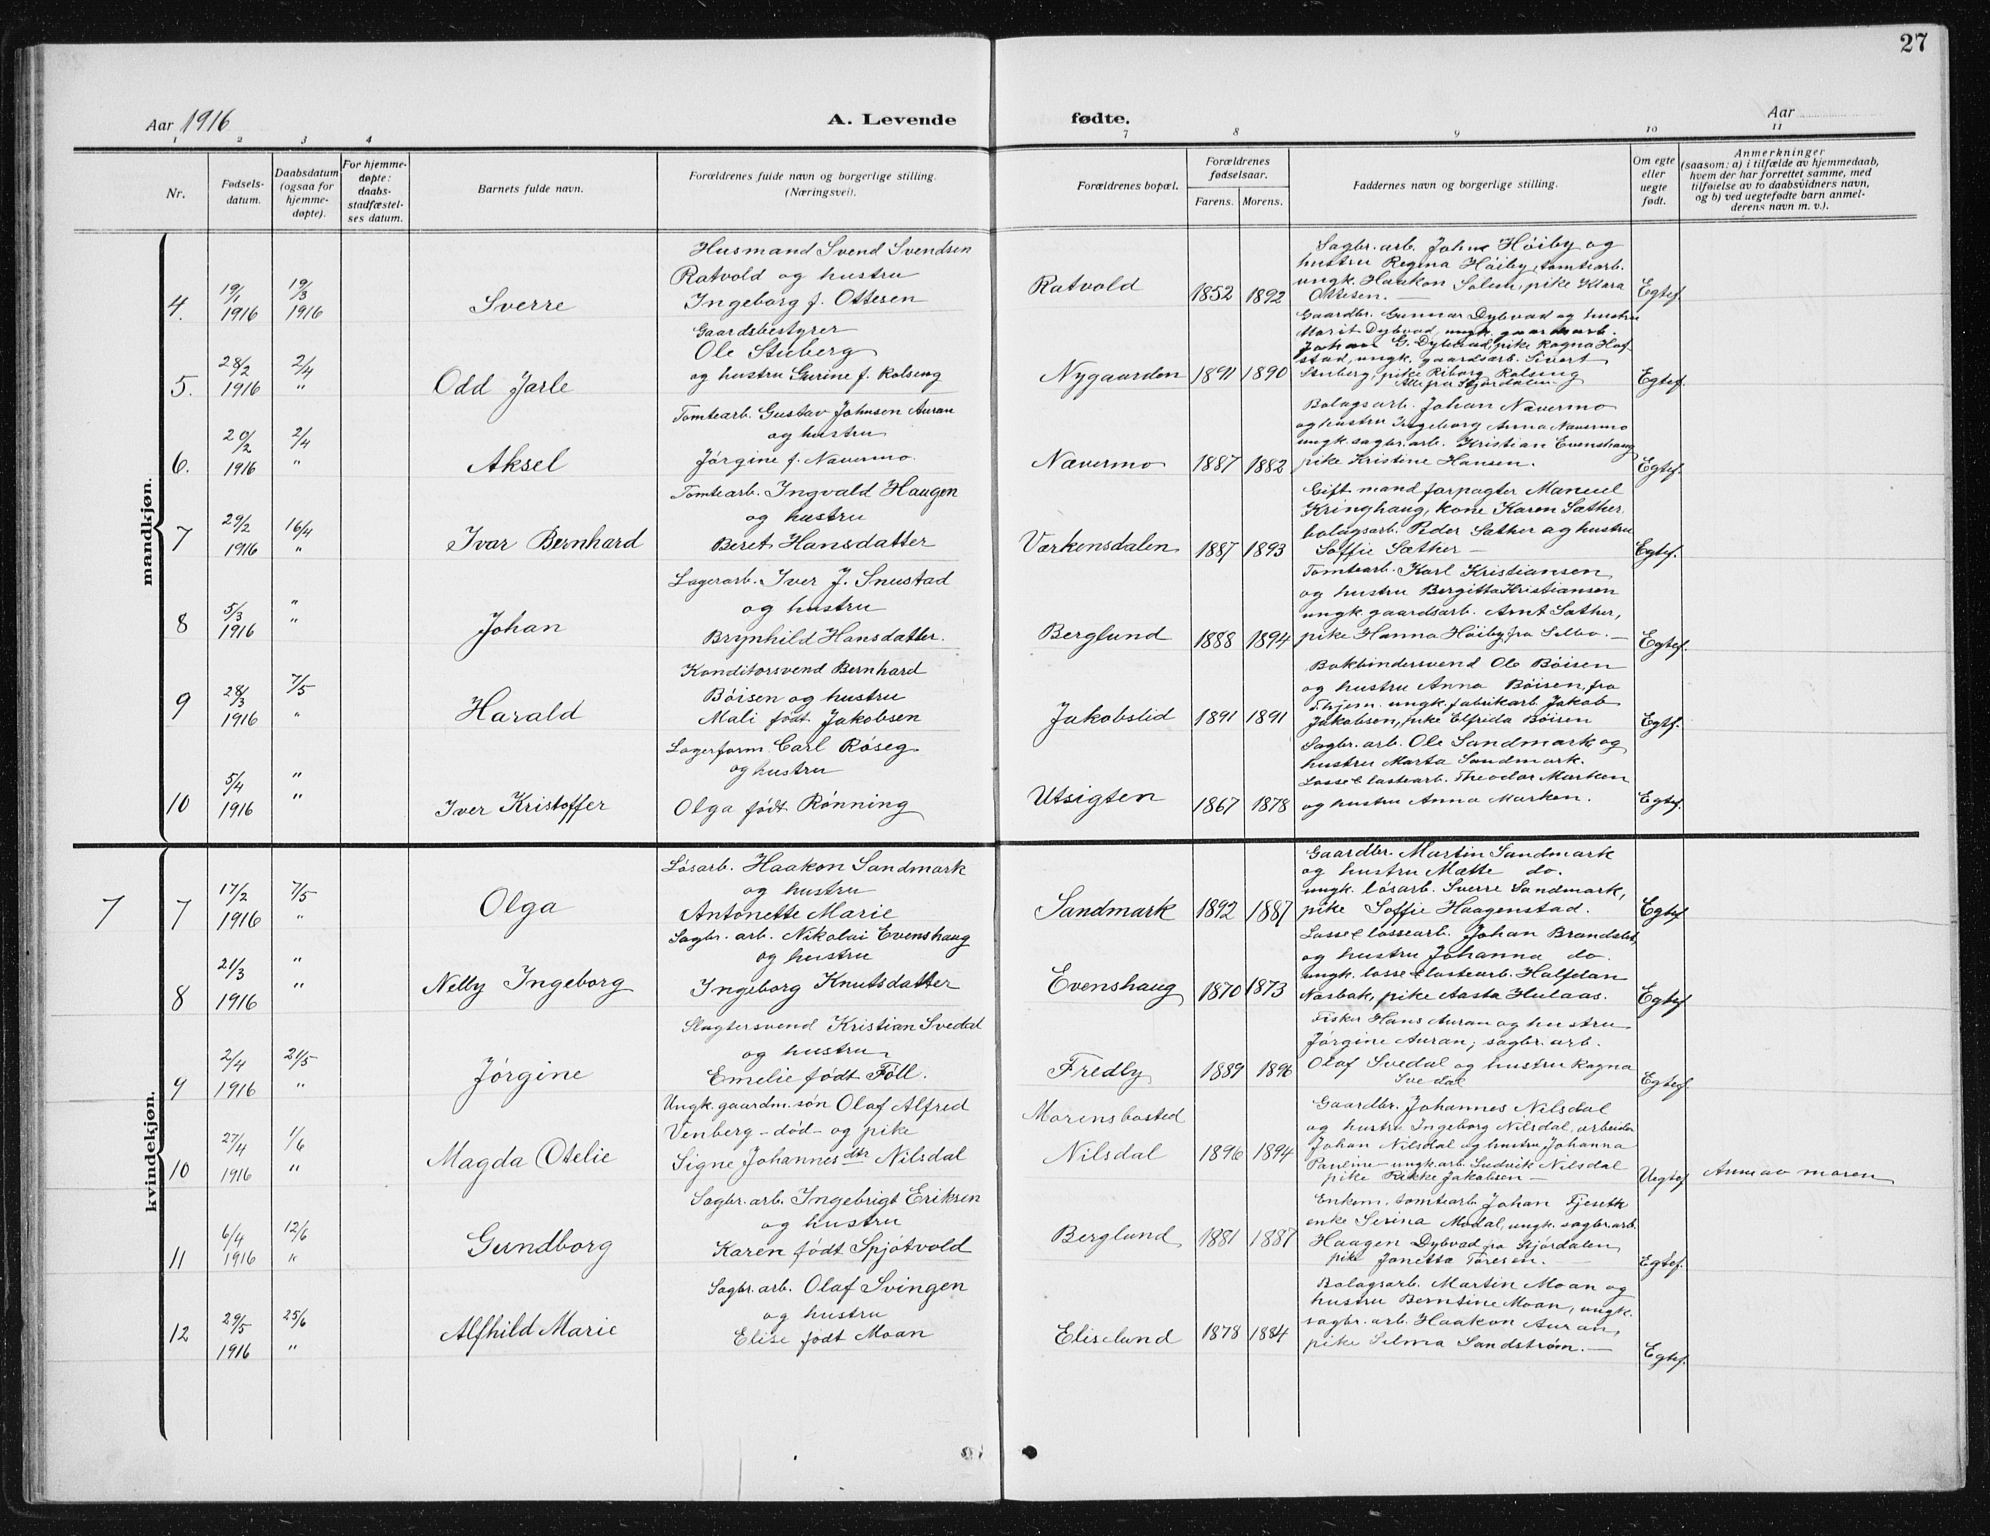 27
Aar 1916
A. Levende fødte.
Aar
1 2 3 4 7 8 9 10 11
Nr.
Fødsels-
datum.
Daabsdatum
(ogsaa for
hjemme-
døpte).
For hjemme-
døpte:
daabs-
stadfæstel-
ses datum.
Barnets fulde navn.
Forældrenes fulde navn og borgerlige stilling.
(Næringsvei).
Forældrenes bopæl.
Forældrenes
fødselsaar.
Farens. Morens.
Faddernes navn og borgerlige stilling.
Om egte
eller
uegte
født.
Anmerkninger
(saasom: a) i tilfælde av hjemmedaab,
hvem der har forrettet samme, med
tilføielse av to daabsvidners navn,
og b) ved uegtefødte barn anmel-
derens navn m. v.).
mandkjøn.
4.
19/1
1916
19/3
1916
Sverre
Husmand Svend Svendsen
Ratvold og hustru
Ingeborg f. Ottesen
Ratvold
1852 1892
Sagbr. arb. John Høiby og
hustru Regina Høiby, tomtearb.
ungk. Haakon Solem, pike Klara
Ottesen. —
Egtef.
5.
28/2
1916
2/4
"
Odd Jarle
Gaardsbestyrer
Ole Stuberg
og hustru Gurine f. Rolseng
Nygaarden
1891 1890
Gaardbr. Gunnar Dybvad og hustru
Marit Dybvad, ungk. gaardsarb.
Johan G. Dybvad, pike Ragna Hof-
stad, ungk. gaardsarb. Sivert
Stuberg, pike Riborg Rolseng
Alle fra Stjørdalen
Egtef.
6.
20/2
1916
2/4
"
Aksel
Tomtearb. Gustav Johnsen Auran
og hustru
Jørgine f. Nævermo.
Nævermo
1887 1882
Bolagsarb. Johan Nævermo
og hustru Ingeborg Anna Nævermo
ungk. sagbr. arb. Kristian Evenshaug
pike Kristine Hansen.
Egtef.
7
29/2
1916
16/4
"
Ivar Bernhard
Tomtearb. Ingvald Haugen
og hustru
Beret Hansdatter
Værkensdalen
1887 1893
Gift mand forpagter Manuel
Kringhaug, kone Karen Sæther,
bolagsarb. Peder Sæther og hustru
Soffie Sæther —
Egtef.
8
5/3
1916
"
"
Johan
Lagerarb. Iver J. Snustad
og hustru
Brynhild Hansdatter.
Berglund
1888 1894
Tomtearb. Karl Kristiansen
og hustru Bergitta Kristiansen
ungk. gaardsarb. Arnt Sæther,
pike Hanna Høiby fra Selbo. —
Egtef.
9
28/3
1916
7/5
"
Harald
Konditorsvend Bernhard
Bøisen og hustru
Mali født Jakobsen
Jakobslid
1891 1891
Bokbindersvend Ole Bøisen
og hustru Anna Bøisen, fra
Thjem. ungk. fabrikarb. Jakob
Jakobsen, pike Elfrida Bøisen
Egtf.
10
5/4
1916
"
"
Iver Kristoffer
Lagerform. Carl Røseg
og hustru
Olga født Rønning
Utsigten
1867 1878
Sagbr. arb. Ole Sandmark og
hustru Marta Sandmark.
Losse & lastearb. Theodor Marken
og hustru Anna Marken.
Egtef.
kvindekjøn.
7
7
17/2
1916
7/5
"
Olga
Løsarb. Haakon Sandmark
og hustru
Antonette Marie
Sandmark
1892 1887
Gaardbr. Martin Sandmark
og hustru Mætte do.
ungk. løsarb. Sverre Sandmark,
pike Soffie Haagenstad.
Egtef
8
21/3
1916
"
"
Nelly Ingeborg
Sagbr. arb. Nikolai Evenshaug
og hustru
Ingeborg Knutsdatter
Evenshaug
1870 1873
Losse & lossearb. Johan Brandslet,
og hustru Johanna do.
ungk. losse & lastearb. Halfdan
Nasbak, pike Aasta Hulaas.
Egtef.
9
2/4
1916
21/5
"
Jørgine
Slagtersvend Kristian Svedal
og hustru
Emelie født Føll.
Fredly
1889 1896
Fisker Hans Auran og hustru
Jørgine Auran, sagbr. arb.
Olaf Svedal og hustru Ragna
Svedal
Egtef
10
27/4
1916
1/6
"
Magda Otelie
Ungk. gaardm. søn Olaf Alfred
Venberg – død – og pike
Signe Johannesdtr Nilsdal
Morens bosted
Nilsdal
1896 1894
Gaardbr. Johannes Nilsdal
og hustru Ingeborg Nilsdal, arbeider
Johan Nilsdal og hustru Johanna
Pauline – ungk. arb. Ludvik Nilsdal
pike Rikke Jakobsen —
Uegtef
Anm av moren
11
6/4
1916
12/6
"
Gundborg
Sagbr. arb. Ingebrigt Eriksen
og hustru
Karen født Spjøtvold
Berglund
1881 1887
Enkem. tomtearb. Johan Fjeseth
enke Serina Modal, ungk. sagbr. arb.
Haagen Dybvad fra Stjørdalen
pike Janetta Toresen. —
Egtef.
12
29/5
1916
25/6
"
Alfhild Marie
Sagbr. arb. Olaf Svingen
og hustru
Elise født Moan
Eliselund
1878 1884
Bolagsarb. Martin Moan og
hustru Berntine Moan, ungk.
sagbr. arb. Haakon Auran,
pike Selma Sandstrøm. —
Egtef.